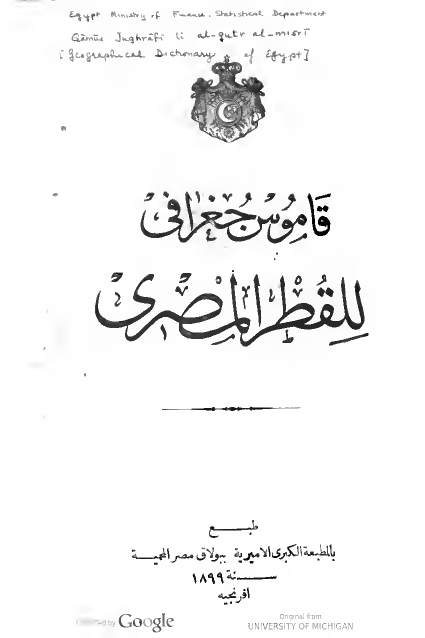 Egypt Ministry of Finance. Statistical Department
Qāmūs Jughrāfī li al-quṭr al-miṣrī
[Geographical Dictionary of Egypt]
قاموس جغرافى
للقطر المصرى
طبع
بالمطبعة الكبرى الاميرية ببولاق مصر المحمية
سنة ١٨٩٩
افرنجيه
Digitized by Google
Original from
UNIVERSITY OF MICHIGAN